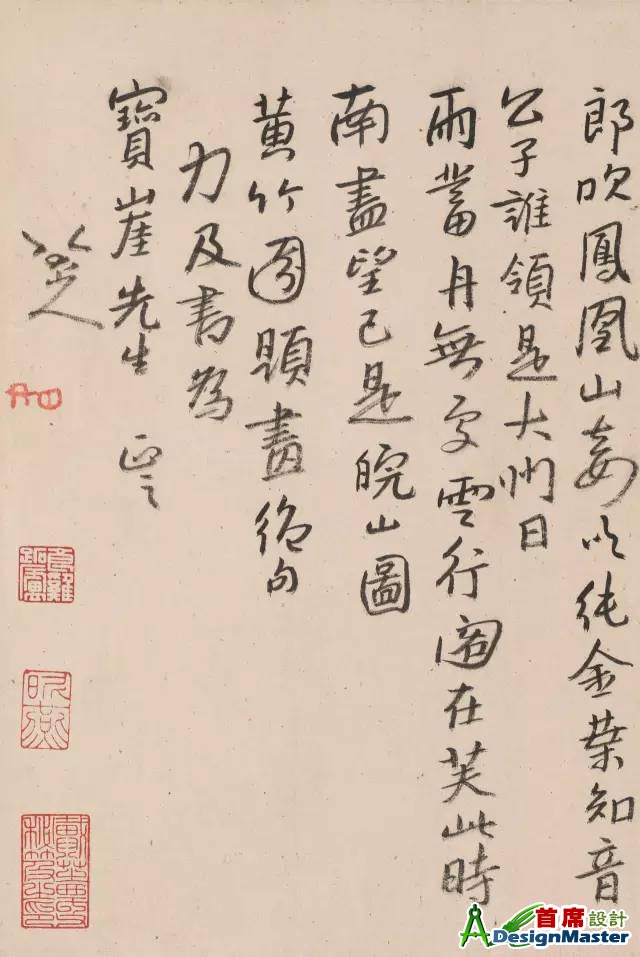 郎吹鳳凰山妾以純金葉知音
公子誰領是大州日
雨蓄無雲行在芙此時
南盡望已是皖山圖
黄竹園題畫絶句
力及書為
寶崖先生 正之
八大山人
首席設計
DesignMaster